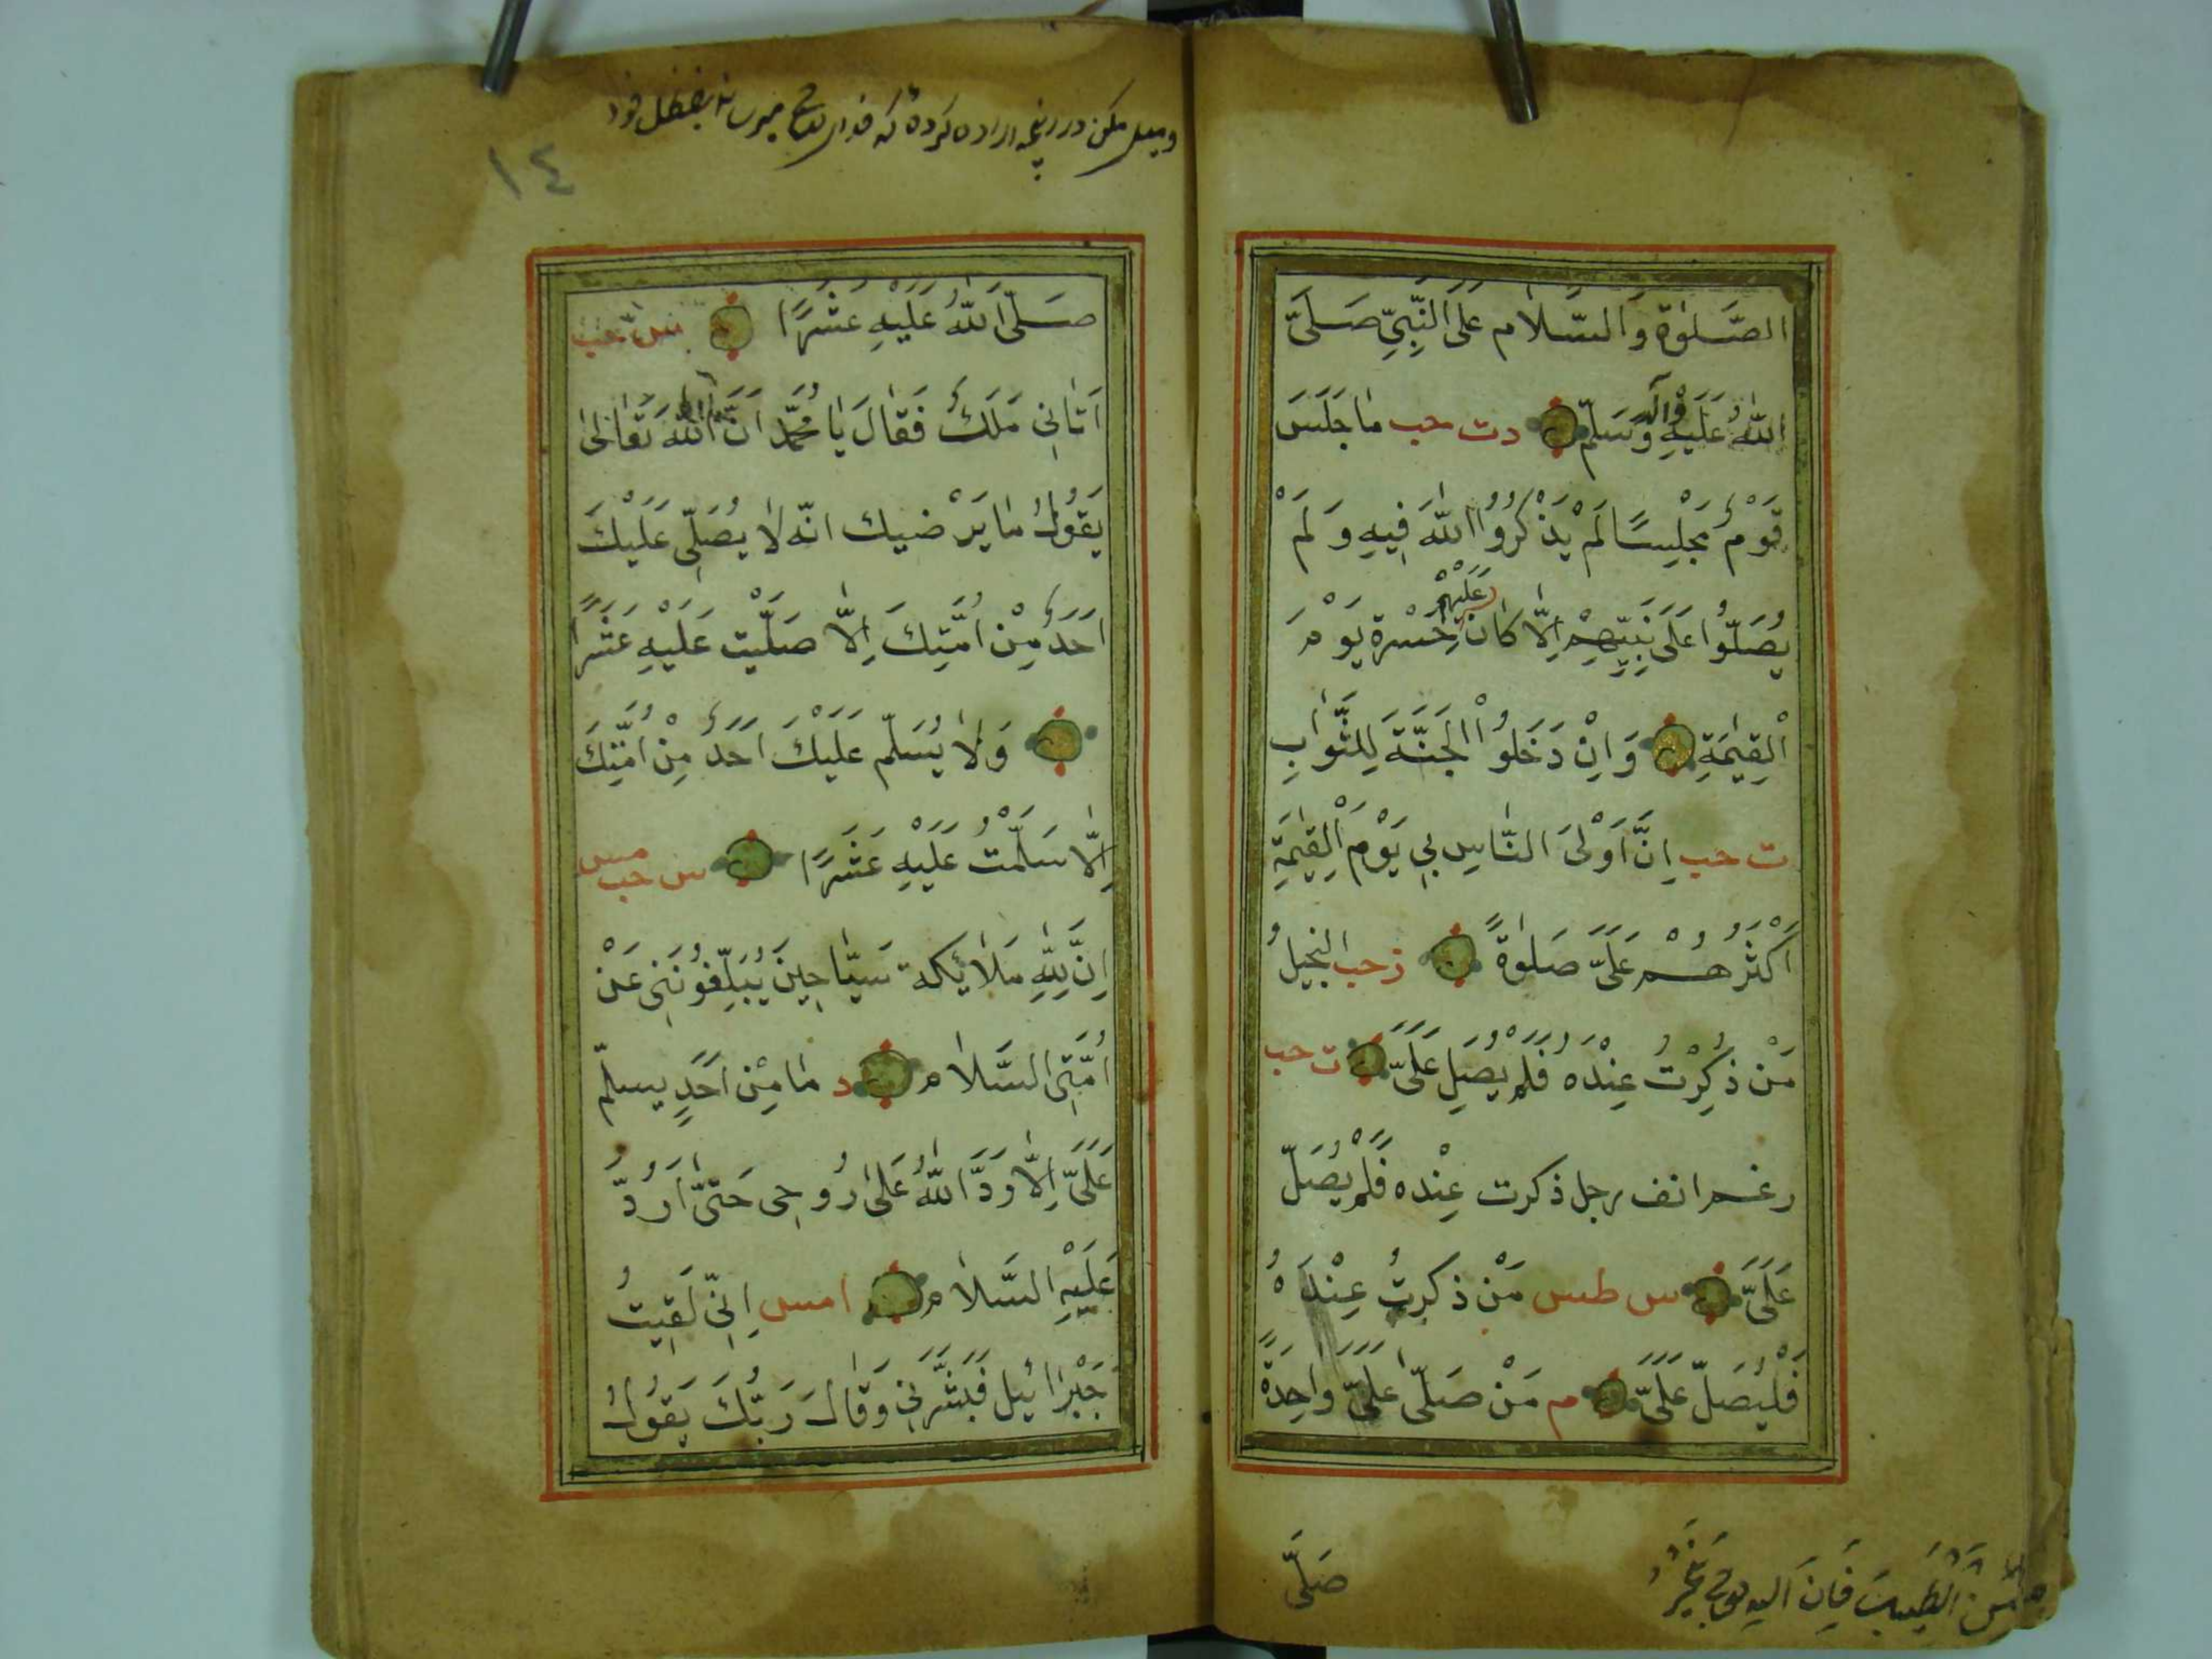 الصَّلوٰةِ وَالسَّلَام عَلَى النَّبِيِّ صَلَّى
اللّٰهُ عَلَيْهِ وَاٰلِهٖ وَسَلَّم دت حب مَا جَلَسَ
قَوْمٌ مَجْلِسًا لَمْ يَذْكُرُوا اللّٰهَ فِيهِ وَلَمْ
يُصَلُّوا عَلَى نَبِيِّهِمْ اِلَّا كَانَ عَلَيْهِمْ حَسْرَة يَوْمَ
الْقِيٰمَةِ وَاِنْ دَخَلُوا الْجَنَّةَ لِلثَّوَابِ
ت حب اِنَّ اَوْلَى النَّاسِ بِي يَوْمَ الْقِيٰمَةِ
اَكْثَرُهُمْ عَلَيَّ صَلٰوةً ت حب البخيلُ
مَنْ ذُكِرْتُ عِنْدَهُ فَلَمْ يُصَلِّ عَلَيَّ ت حب
رغم انف رجل ذكرت عِنْده فَلَمْ يُصَلِّ
عَلَيَّ س طس مَنْ ذكرتُ عِنْدَهُ
فَلْيُصَلِّ عَلَيَّ م مَنْ صَلَّى عَلَيَّ وَاحِدَةً
صَلَّى
صَلَّى اللّٰهُ عَلَيْهِ عَشْرًا س حب
اَتَانِي مَلَكٌ فَقَالَ يَا مُحَمَّد اَنَّ اللّٰه تَعَالٰى
يَقُولُ مَا يَرْضيك انّه لَا يُصَلِّي عَلَيْكَ
اَحَدٌ مِنْ اُمَّتِكَ اِلَّا صَلَّيْت عَلَيْهِ عَشْرًا
وَلَا يُسَلِّم عَلَيْكَ اَحَدٌ مِنْ اُمَّتِكَ
اِلَّا سَلَّمْتُ عَلَيْهِ عَشَرًا س حب مس
اِنَّ لِلّٰهِ مَلَائِكة سَيَّاحِينَ يُبَلِّغُونَنِي عَنْ
اُمَّتِي السَّلَام د مَا مِنْ اَحَدٍ يسلّم
عَلَيَّ اِلَّا رَدَّ اللّٰهُ عَلَى رُوحِي حَتَّى اَرُدَّ
عَلَيْهِ السَّلَام امس اِنِّي لَقِيتُ
جَبْرَائيل فَبَشَّرَنِي وَقَالَ رَبُّكَ يَقُولُ
١٤